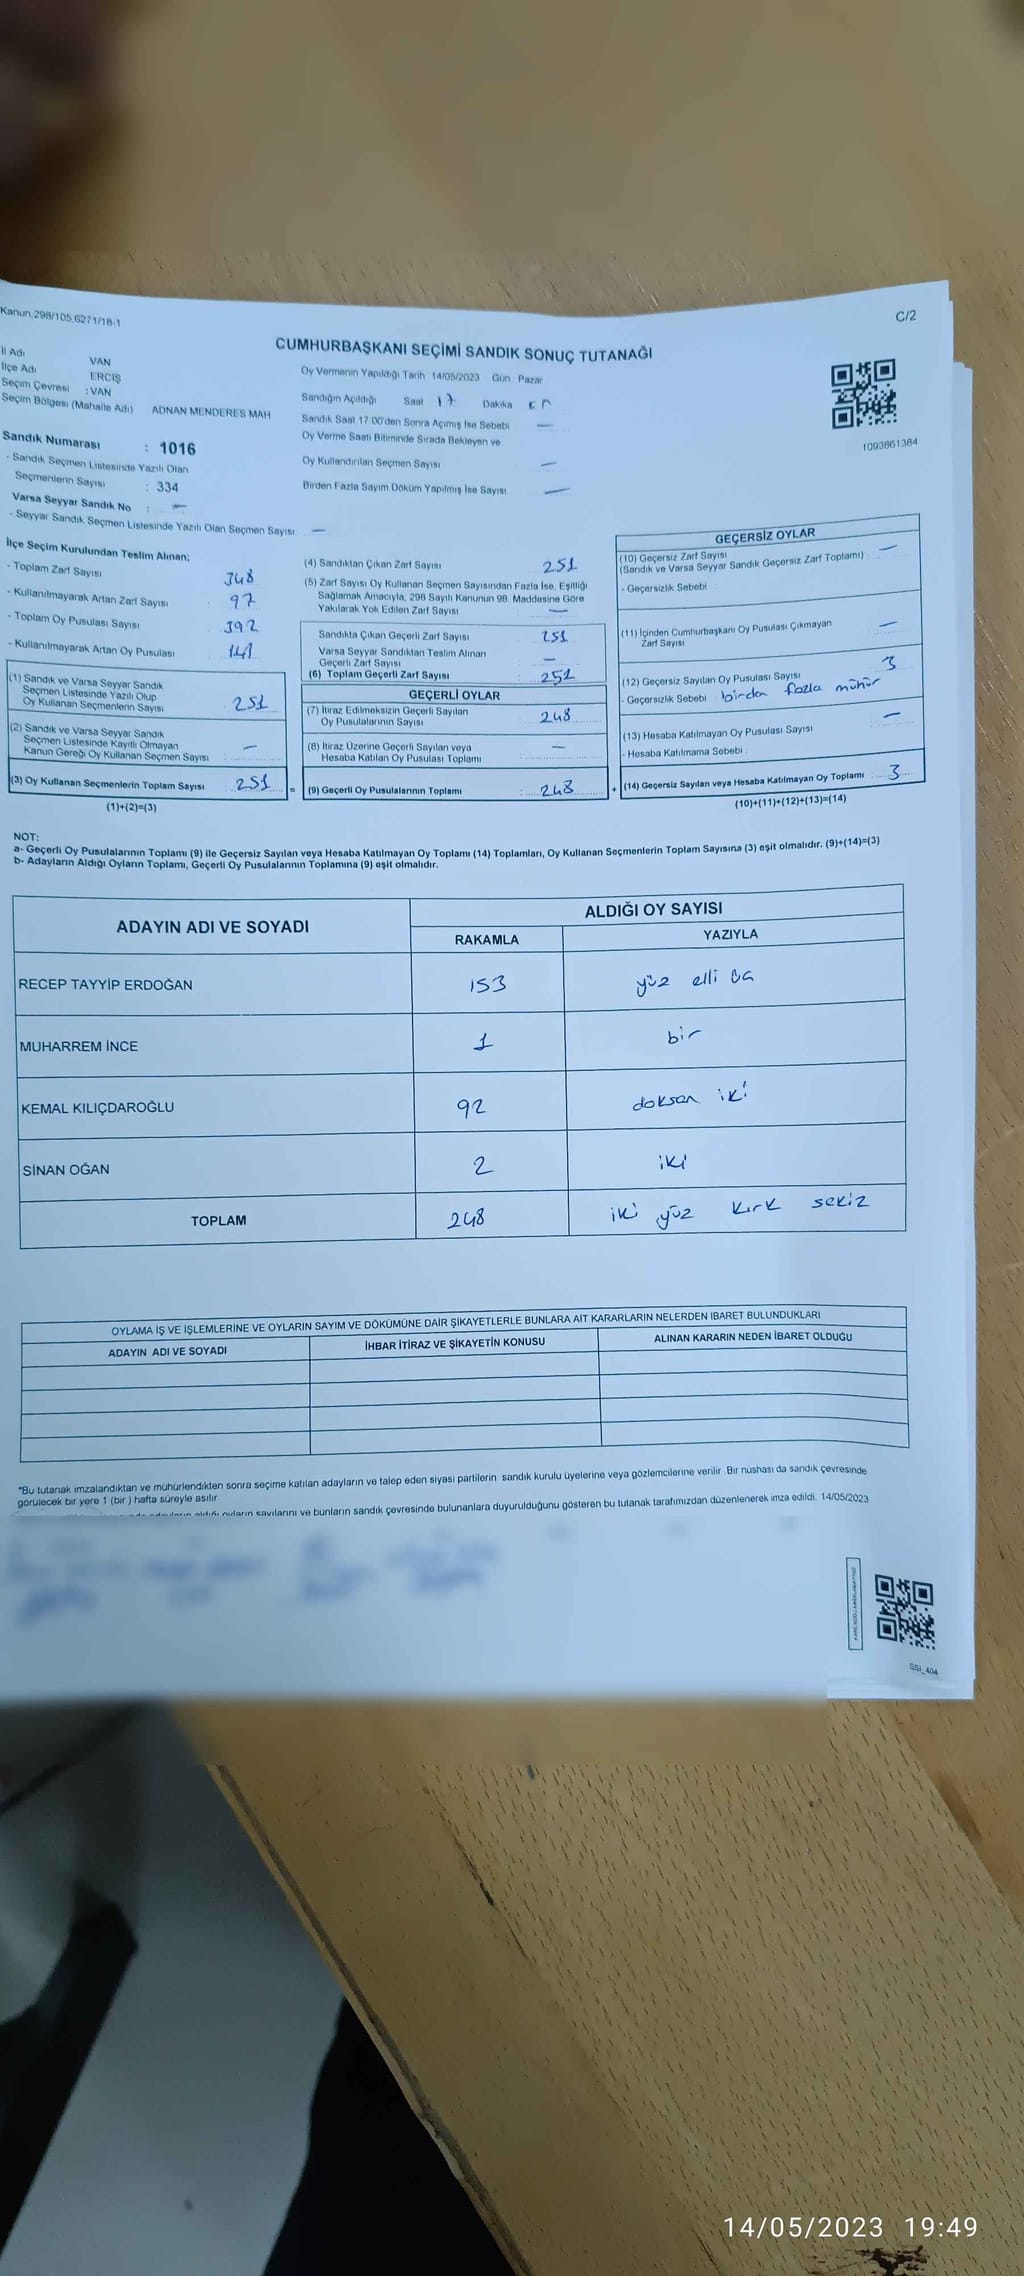 Kanun,298/105,6271/18-1
C/2
CUMHURBAŞKANI SEÇİMİ SANDIK SONUÇ TUTANAĞI
İl Adı VAN
İlçe Adı ERCİŞ
Seçim Çevresi : VAN
Seçim Bölgesi (Mahalle Adı) ADNAN MENDERES MAH
Sandık Numarası : 1016
- Sandık Seçmen Listesinde Yazılı Olan
Seçmenlerin Sayısı : 334
Varsa Seyyar Sandık No : —
- Seyyar Sandık Seçmen Listesinde Yazılı Olan Seçmen Sayısı —
Oy Vermenin Yapıldığı Tarih 14/05/2023 Gün : Pazar
Sandığın Açıldığı Saat 17 Dakika
Sandık Saat 17.00'den Sonra Açılmış İse Sebebi —
Oy Verme Saati Bitiminde Sırada Bekleyen ve
Oy Kullandırılan Seçmen Sayısı —
Birden Fazla Sayım Döküm Yapılmış İse Sayısı —
1093861384
İlçe Seçim Kurulundan Teslim Alınan;
- Toplam Zarf Sayısı : 348
- Kullanılmayarak Artan Zarf Sayısı : 97
- Toplam Oy Pusulası Sayısı : 392
- Kullanılmayarak Artan Oy Pusulası : 141
(1) Sandık ve Varsa Seyyar Sandık
Seçmen Listesinde Yazılı Olup
Oy Kullanan Seçmenlerin Sayısı : 251
(2) Sandık ve Varsa Seyyar Sandık
Seçmen Listesinde Kayıtlı Olmayan
Kanun Gereği Oy Kullanan Seçmen Sayısı : —
(3) Oy Kullanan Seçmenlerin Toplam Sayısı : 251
(1)+(2)=(3)
(4) Sandıktan Çıkan Zarf Sayısı : 251
(5) Zarf Sayısı Oy Kullanan Seçmen Sayısından Fazla İse, Eşitliği
Sağlamak Amacıyla, 298 Sayılı Kanunun 98. Maddesine Göre
Yakılarak Yok Edilen Zarf Sayısı : —
Sandıkta Çıkan Geçerli Zarf Sayısı : 251
Varsa Seyyar Sandıktan Teslim Alınan
Geçerli Zarf Sayısı : —
(6) Toplam Geçerli Zarf Sayısı : 251
GEÇERLİ OYLAR
(7) İtiraz Edilmeksizin Geçerli Sayılan
Oy Pusulalarının Sayısı : 248
(8) İtiraz Üzerine Geçerli Sayılan veya
Hesaba Katılan Oy Pusulası Toplamı : —
= (9) Geçerli Oy Pusulalarının Toplamı : 248 +
GEÇERSİZ OYLAR
(10) Geçersiz Zarf Sayısı
(Sandık ve Varsa Seyyar Sandık Geçersiz Zarf Toplamı) : —
- Geçersizlik Sebebi :
(11) İçinden Cumhurbaşkanı Oy Pusulası Çıkmayan
Zarf Sayısı : —
(12) Geçersiz Sayılan Oy Pusulası Sayısı : 3
- Geçersizlik Sebebi : birden fazla mühür
(13) Hesaba Katılmayan Oy Pusulası Sayısı : —
- Hesaba Katılmama Sebebi :
(14) Geçersiz Sayılan veya Hesaba Katılmayan Oy Toplamı : 3
(10)+(11)+(12)+(13)=(14)
NOT:
a- Geçerli Oy Pusulalarının Toplamı (9) ile Geçersiz Sayılan veya Hesaba Katılmayan Oy Toplamı (14) Toplamları, Oy Kullanan Seçmenlerin Toplam Sayısına (3) eşit olmalıdır. (9)+(14)=(3)
b- Adayların Aldığı Oyların Toplamı, Geçerli Oy Pusulalarının Toplamına (9) eşit olmalıdır.
ADAYIN ADI VE SOYADI ALDIĞI OY SAYISI
RAKAMLA YAZIYLA
RECEP TAYYİP ERDOĞAN 153 yüz elli üç
MUHARREM İNCE 1 bir
KEMAL KILIÇDAROĞLU 92 doksan iki
SİNAN OĞAN 2 iki
TOPLAM 248 iki yüz kırk sekiz
OYLAMA İŞ VE İŞLEMLERİNE VE OYLARIN SAYIM VE DÖKÜMÜNE DAİR ŞİKAYETLERLE BUNLARA AİT KARARLARIN NELERDEN İBARET BULUNDUKLARI
ADAYIN ADI VE SOYADI İHBAR İTİRAZ VE ŞİKAYETİN KONUSU ALINAN KARARIN NEDEN İBARET OLDUĞU
*Bu tutanak imzalandıktan ve mühürlendikten sonra seçime katılan adayların ve talep eden siyasi partilerin sandık kurulu üyelerine veya gözlemcilerine verilir. Bir nüshası da sandık çevresinde
görülecek bir yere 1 (bir) hafta süreyle asılır.
adayların aldığı oyların sayılarını ve bunların sandık çevresinde bulunanlara duyurulduğunu gösteren bu tutanak tarafımızdan düzenlenerek imza edildi. 14/05/2023
SSİ_404
14/05/2023 19:49